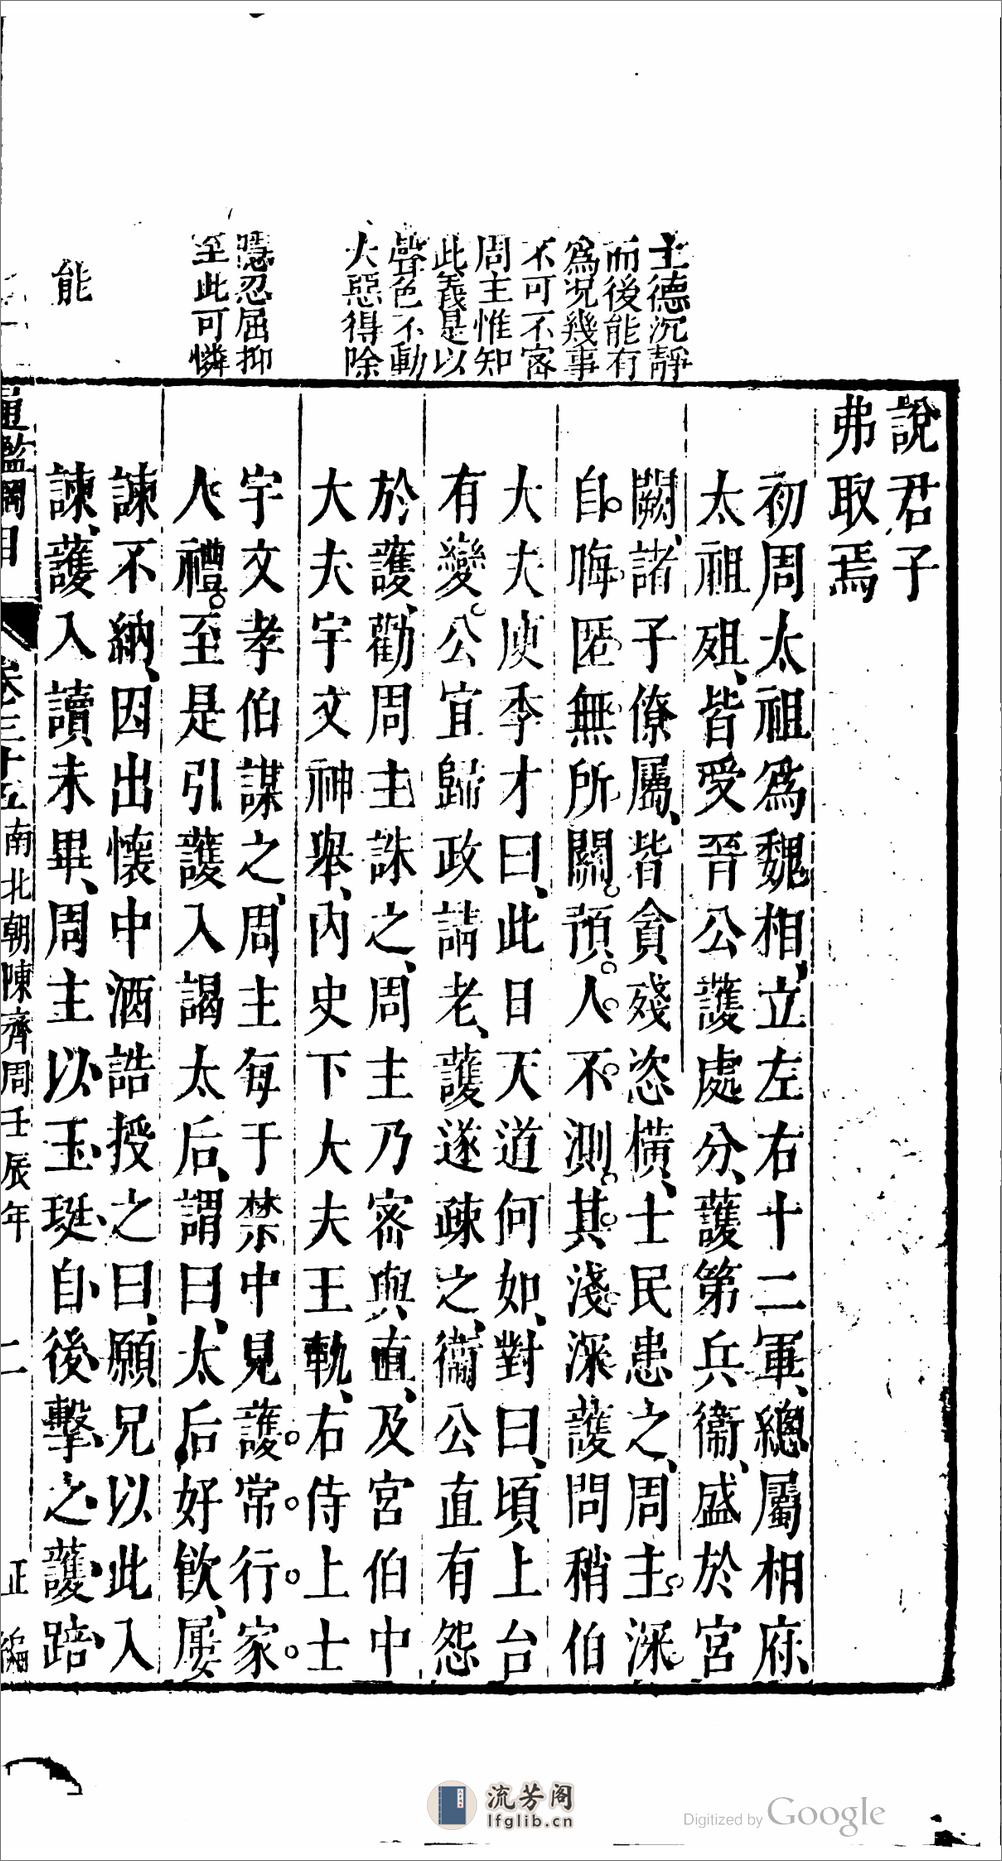 主德沉靜
而後能有
爲况幾事
不可不密
周主惟知
此義是以
聲色不動
大惡得除
隱忍屈抑
至此可憐
能
說君子
弗取焉
初周太祖爲魏相、立左右十二軍、總屬相府、
太祖殂、皆受晉公護處分、護第兵衞、盛於宮
闕、諸子僚屬、皆貪殘恣橫、士民患之、周主深
自晦匿無所關預。人不測其淺深護問稍伯
大夫庾季才曰、此日天道何如、對曰、頃上台
有變。公宜歸政請老、護遂疎之、衞公直有怨
於護、勸周主誅之、周主乃密與直、及宮伯中
大夫宇文神舉、內史下大夫王軌、右侍上士
宇文孝伯謀之、周主每于禁中見護。常。行。家。
人禮。至是引護入謁太后、謂曰、太后好飲、屢
諫不納、因出懷中酒誥授之曰、願兄以此入
諫、護入讀未畢、周主以玉珽自後擊之、護踣
通鑑綱目
卷三十五
南北朝陳齊周壬辰年
二
正編
流芳阁
lfglib.cn
Digitized by Google